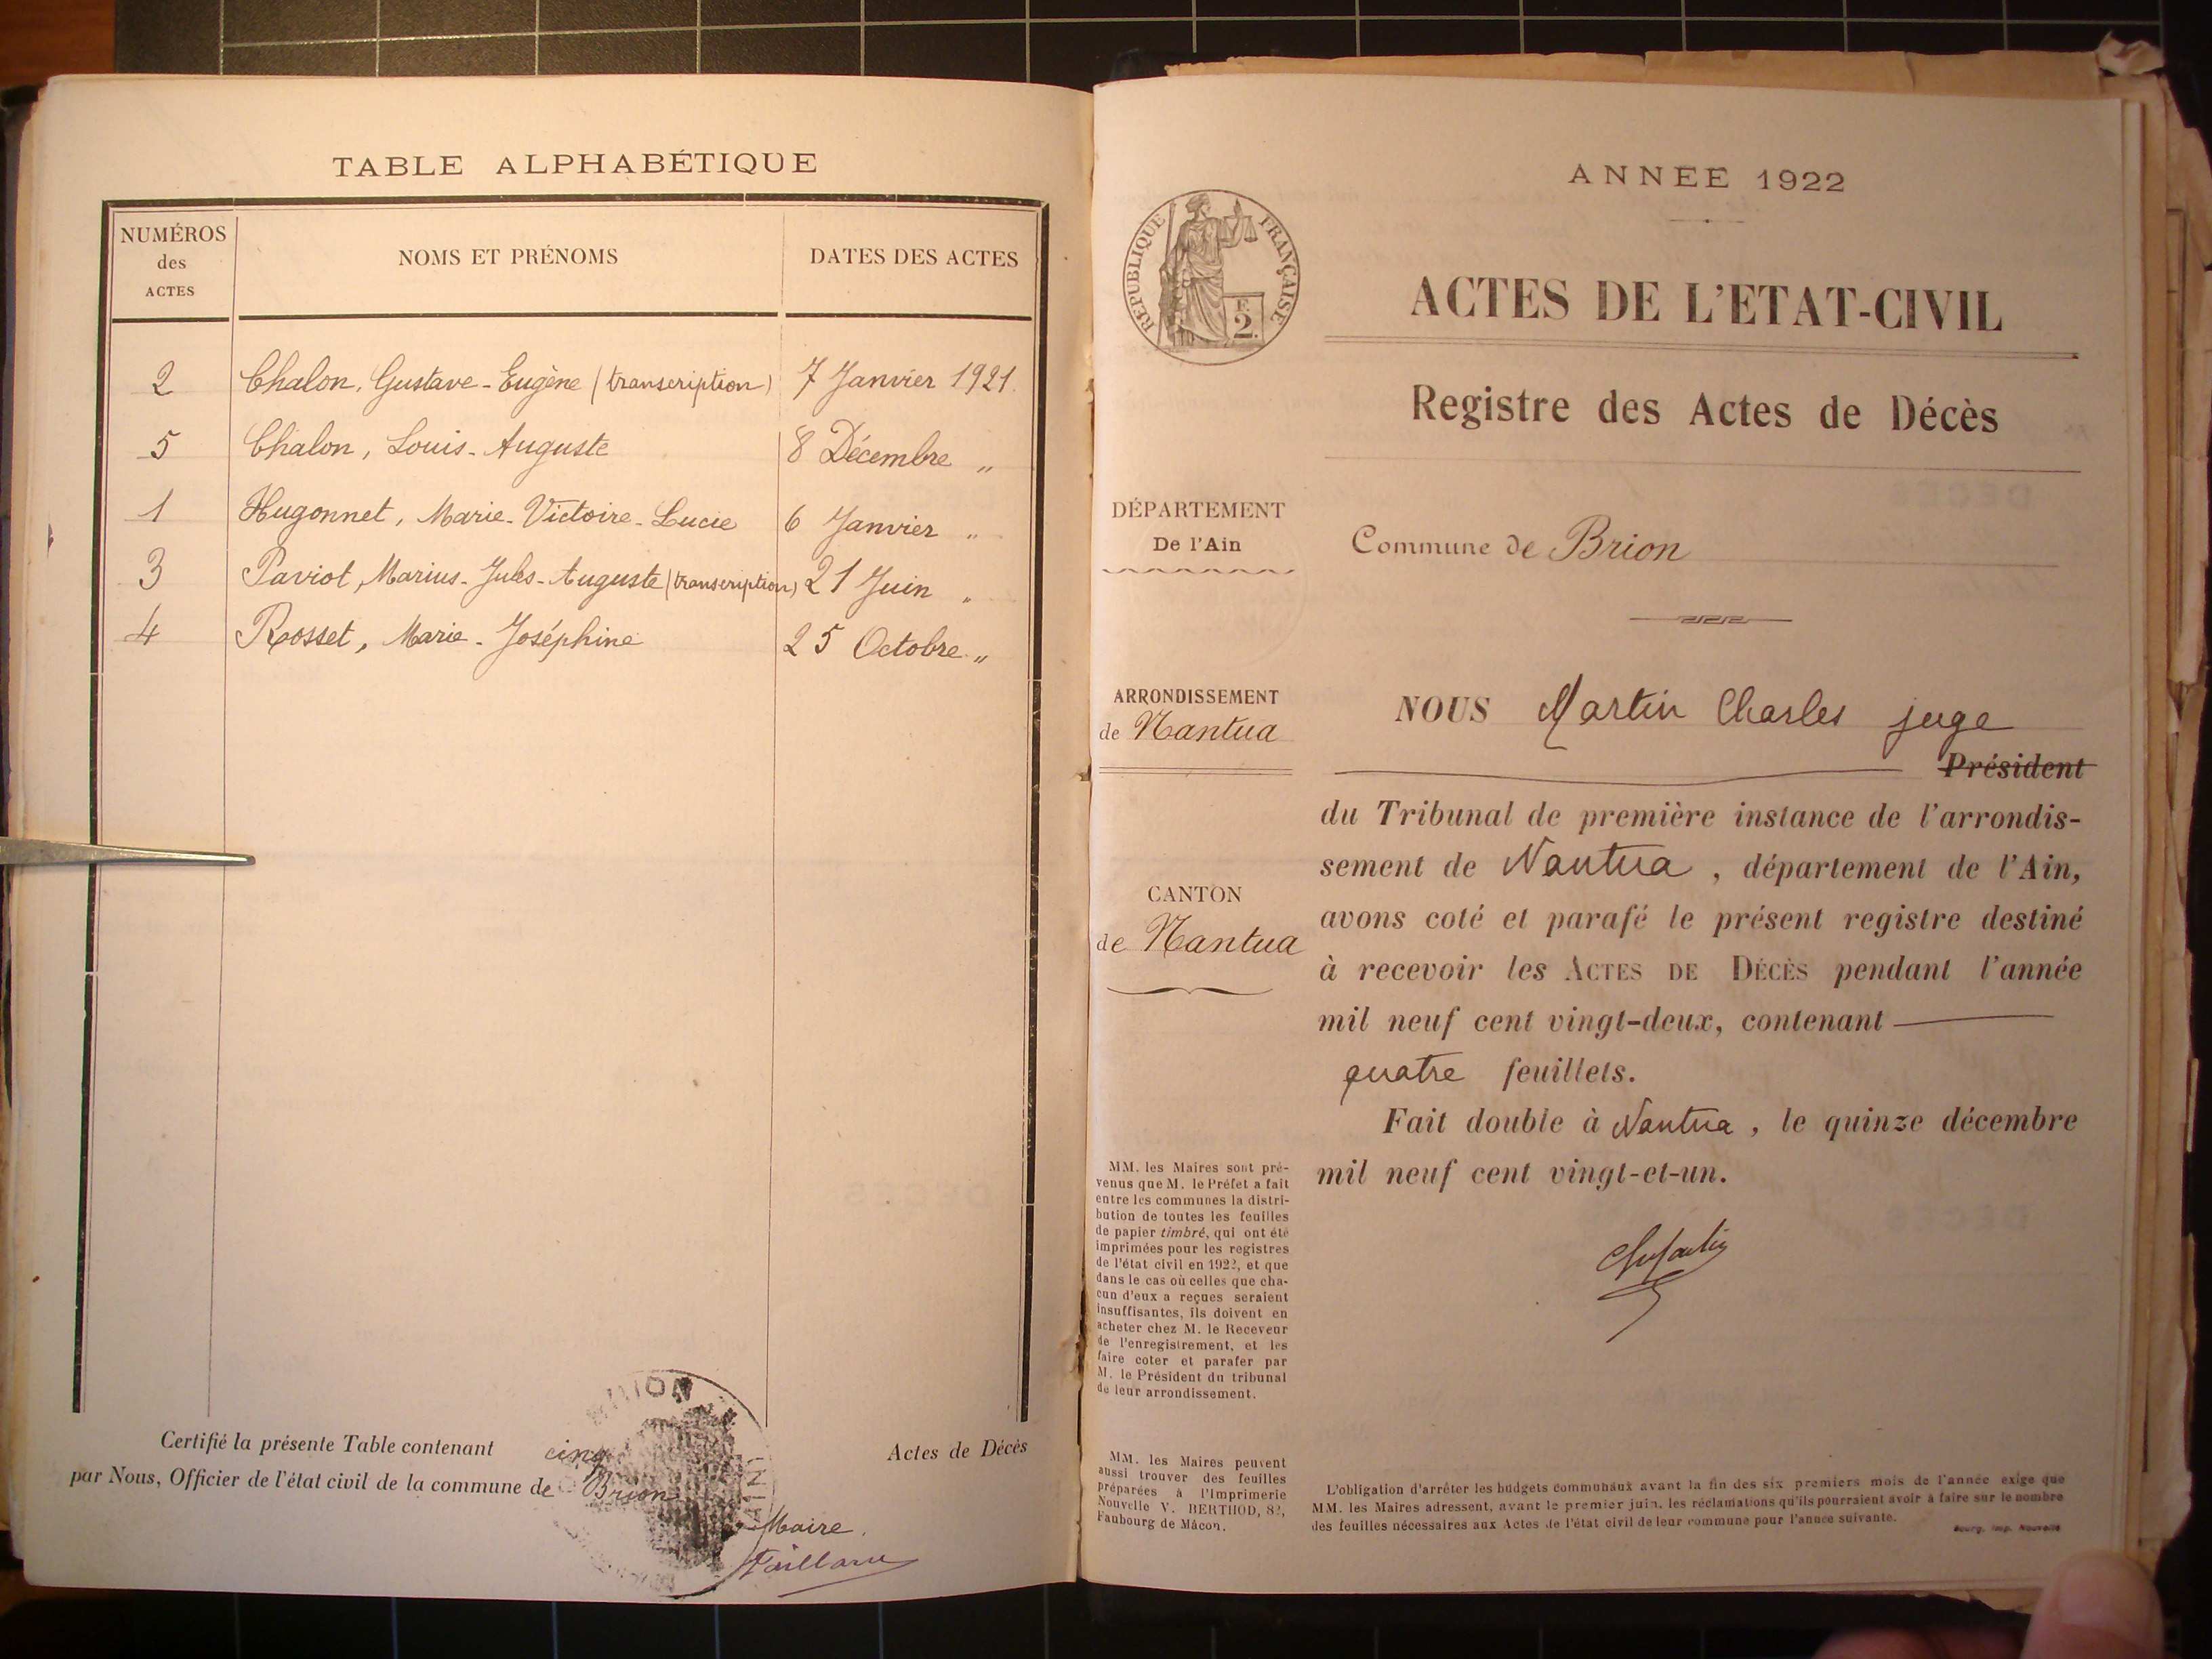 TABLE ALPHABÉTIQUE
NUMÉROS
des
ACTES
NOMS ET PRÉNOMS
DATES DES ACTES
2 Chalon, Gustave-Eugène (transcription) 7 Janvier 1921.
5 Chalon, Louis-Auguste 8 Décembre „
1 Hugonnet, Marie-Victoire-Lucie 6 Janvier „
3 Paviot, Marius-Jules-Auguste (transcription) 21 Juin „
4 Rosset, Marie-Joséphine 25 Octobre „
Certifié la présente Table contenant cinq Actes de Décès
par Nous, Officier de l'état civil de la commune de Brion
Maire.
ANNEE 1922
RÉPUBLIQUE FRANÇAISE
F.
2.
ACTES DE L'ETAT-CIVIL
Registre des Actes de Décès
DÉPARTEMENT
De l'Ain
Commune de Brion
ARRONDISSEMENT
de Nantua
CANTON
de Nantua
NOUS Martin Charles juge
Président
du Tribunal de première instance de l'arrondis-
sement de Nantua, département de l'Ain,
avons coté et parafé le présent registre destiné
à recevoir les ACTES DE DÉCÈS pendant l'année
mil neuf cent vingt-deux, contenant
quatre feuillets.
Fait double à Nantua, le quinze décembre
mil neuf cent vingt-et-un.
MM. les Maires sont pré-
venus que M. le Préfet a fait
entre les communes la distri-
bution de toutes les feuilles
de papier timbré, qui ont été
imprimées pour les registres
de l'état civil en 1922, et que
dans le cas où celles que cha-
cun d'eux a reçues seraient
insuffisantes, ils doivent en
acheter chez M. le Receveur
de l'enregistrement, et les
faire coter et parafer par
M. le Président du tribunal
de leur arrondissement.
MM. les Maires peuvent
aussi trouver des feuilles
préparées à l'Imprimerie
Nouvelle V. BERTHOD, 82,
Faubourg de Mâcon.
L'obligation d'arrêter les budgets communaux avant la fin des six premiers mois de l'année exige que
MM. les Maires adressent, avant le premier juin, les réclamations qu'ils pourraient avoir à faire sur le nombre
des feuilles nécessaires aux Actes de l'état civil de leur commune pour l'année suivante.
Bourg, Imp. Nouvelle